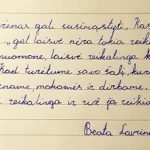 gali susimąstyti. "Kas
"gal laisvė nėra tokia reika
nuomone, laisvė reikalinga k
kad turėtume savo šalį, kur
mokomės ir dirbame.
reikalinga ir
Beata Lavrin